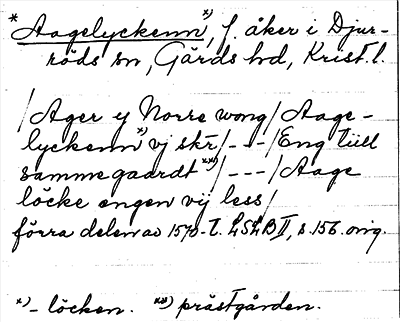 * Aagelyckenn*), f. åker i Djur-
röds sn, Gärds hd, Krist. l.
/Ager y Norre wong/Aage-
lyckenn*) vj skr/---/Eng tiill
samme gaardt**)/---/Aage
löcke engen vij less/
förra delen av 1570-t. LSLB II, s. 156. orig.
*) - löcken. **) prästgården.